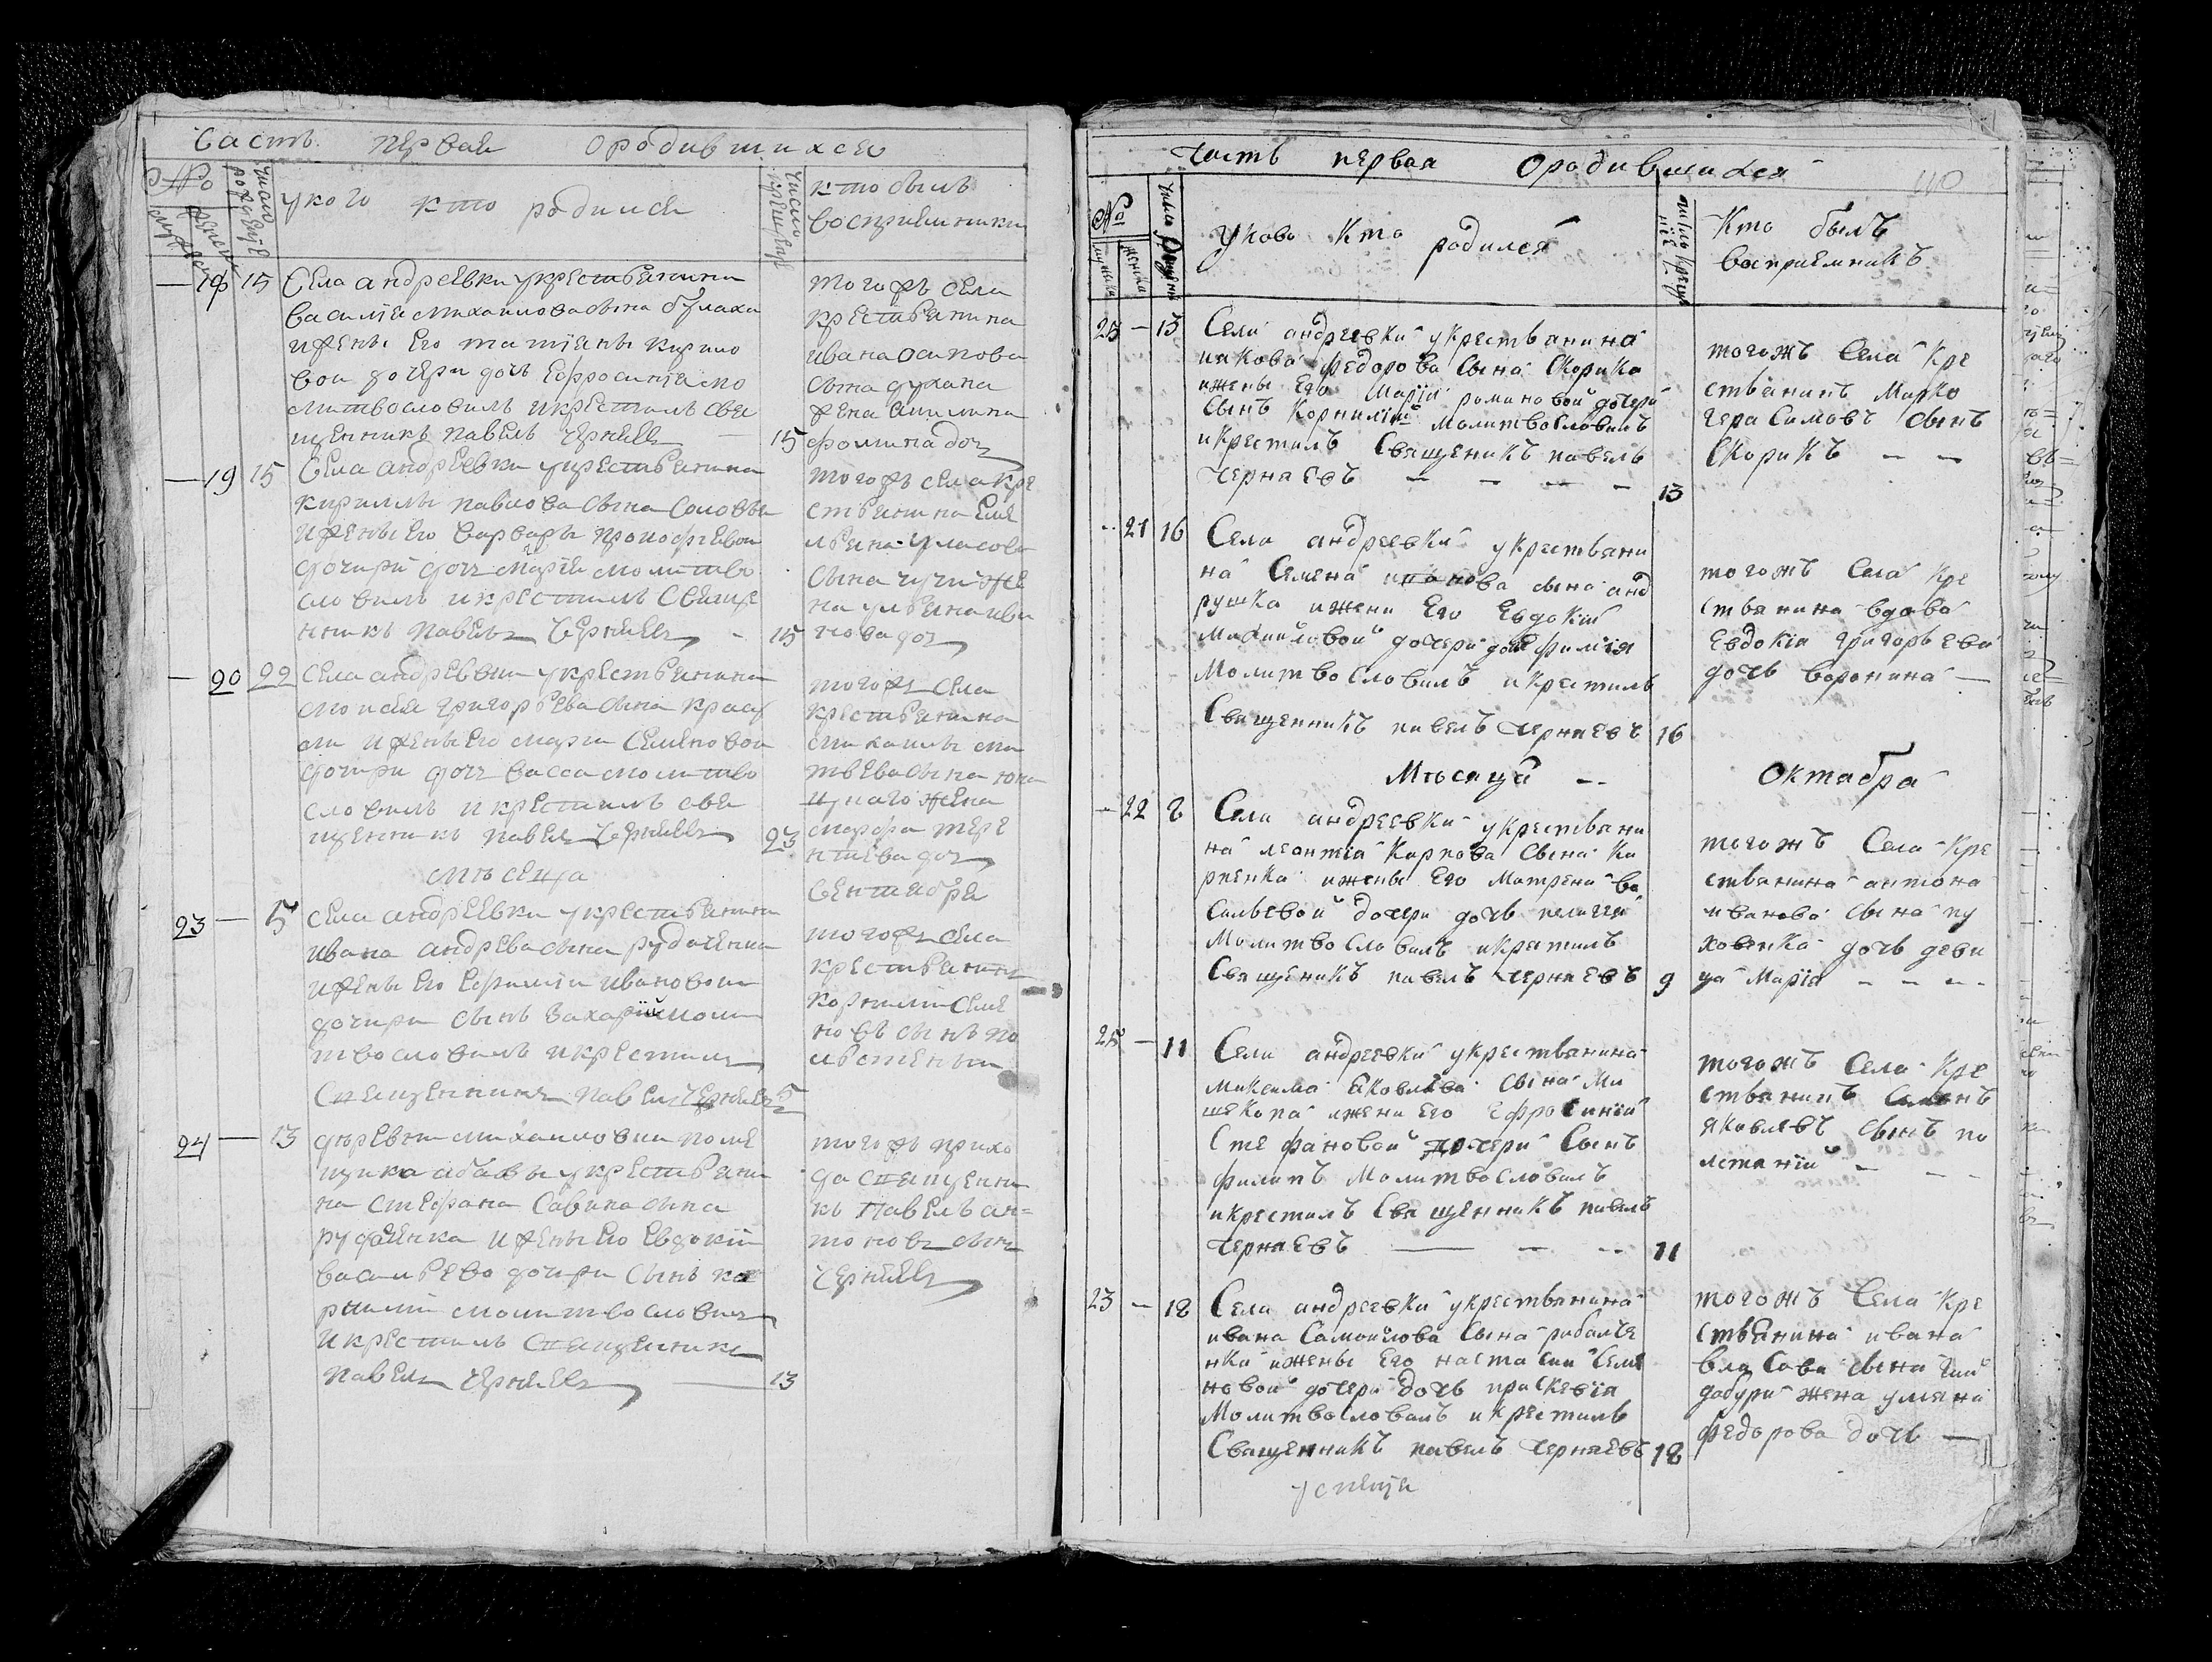 Часть первая ородившихся
№
мужеска
женска
число рождения
укого кто родился
число крещения
кто былъ
восприемники
— 18 15 Села андреевки укрестьянина
василия михаилова сына булаха
ижены его татияны кирило
вои дочери дочь Ефросиния мо
литвословилъ икрестилъ свя
щенникъ павелъ черняевъ — 15
тогожъ села
крестьянина
ивана осипова
сына духана
жена акилина
фомина дочь
— 19 15 Села андреевки укрестьянина
кириллы павлова сына Соловья
ижены его варвары прокофиевои
дочири дочь мария молитво
словилъ икрестилъ Свяще
нникъ павелъ Черняевъ - 15
тогожъ села кре
стьянина Еме
льяна власова
сына жена
ульяна ива
нова дочь
— 20 22 Села андреевки укрестьянина
моисея григорьева сына
ижены его марии Семеновои
дочири дочь васса молитво
словилъ икрестилъ свя
щенникъ павелъ Черняевъ 23
тогожъ села
крестьянина
михаилы ма
твеева сына
жена
марфа тере
нтиева дочь
мѣсеца Сентября
23 — 5 села андреевки укрестьянина
ивана андреева сына рудченка
ижены его Ефимии ивановои
дочири сынъ Захарий моли
твословилъ икрестилъ
Священникъ павелъ Черняевъ 5
тогожъ села
крестьянинъ
корнилии Семе
новъ сынъ по
лстяныи
24 — 13 деревни михаиловки поме
щика абазы укрестьяни
на Стефана Савина сына
рудченка ижены его Евдокии
васильево дочири Сынъ ко
рнилии молитвословилъ
икрестилъ Священникъ
павелъ черняевъ — 13
тогожъ прихо
да священни
къ павелъ ан=
тоновъ сынъ
Черняевъ
Часть первая Ородившихся
110
№
мужеска
женска
число рождения
укого кто родился
число крещения
Кто былъ
восприемникъ
25 — 13 Села андреевки укрестьянина
иякова федорова Сына Скорика
ижены Его Марїи романовой дочери
Сынъ Корнилїй молитвословилъ
икрестилъ Священикъ павелъ
Черняевъ — — — — 13
тогожъ Села Кре
стьянинъ Марко
гера Симовъ сынъ
Скорикъ — —
- 21 16 Села андреевки укрестьяни
на Семена иванова сына анд
рушка ижени Его Евдокїи
Михаиловой дочери дочь Ефимїя
Молитвословилъ икрестилъ
Священникъ павелъ Черняевъ 16
тогожъ Села Кре
стьянина вдова
Евдокїя григорьева
дочь воронина —
Мѣсяца — Октября
- 22 8 Села андреевки укрестьяни
на леонтїа Карпова Сына Ка
рпенка ижены Его Матрены ва
сильевой дочери дочь пелагея
Молитвословилъ икрестилъ
Священикъ павелъ Черняевъ 9
тогожъ Села Кре
стьянина антона
иванова сына пу
ховенка дочь деви
ца Марїя - - - -
25 — 11 Села андреевки укрестьянина
Максима Яковлева Сына Ми
щекопа ижени Его Ефросинїи
Стефановой дочери Сынъ
филипъ Молитвословилъ
икрестилъ Священникъ павелъ
Черняевъ — — — 11
тогожъ Села Кре
стьянинъ Семенъ
Яковлевъ сынъ по
лстянїй - - -
23 — 18 Села андреевки укрестьянина
ивана Самойлова Сына рибалче
нка ижены Его настасии Семе
новой дочери дочь прасковїя
Молитвословилъ икрестилъ
Священникъ павелъ Черняевъ 18
тогожъ Села Кре
стьянина ивана
власова сына гай
дабури жена уляна
федорова дочь —